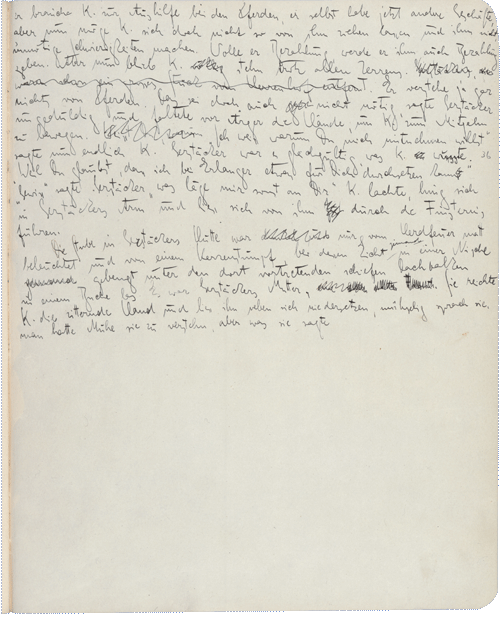 er brauche K. zur Aushilfe bei den Pferden, er selbst habe jetzt andere Geschäfte
aber nun möge K. sich doch nicht so von ihm ziehen lassen und ihm nicht
unnötige Schwierigkeiten machen. Wolle er Bezahlung werde er ihm auch Bezahlung
geben. Aber nun blieb K. stehn trotz allem Zerren.
Er verstehe ja gar
nichts von Pferden. Das sei doch auch nicht nötig sagte Gerstäcker
ungeduldig und faltete vor Ärger die Hände, um K. zum Mitgehn
zu bewegen. "Ich weiß warum Du mich mitnehmen willst"
sagte nun endlich K. Gerstäcker war es gleichgültig, was K. wußte.
"Weil Du glaubst, daß ich bei Erlanger etwas für Dich durchsetzen kann"
"Gewiß" sagte Gerstäcker, "was läge mir sonst an Dir" K. lachte, hing sich
in Gerstäckers Arm und ließ sich von ihm durch die Finsternis
führen.
Die Stube in Gerstäckers Hütte war nur vom Herdfeuer matt
beleuchtet und von einem Kerzenstumpf bei dessen Licht jemand in einer Nische
gebeugt unter den dort vortretenden schiefen Dachbalken
in einem Buche las. Es war Gerstäckers Mutter. Sie reichte
K. die zitternde Hand und ließ ihn neben sich niedersetzen, mühselig sprach sie,
man hatte Mühe sie zu verstehn, aber was sie sagte